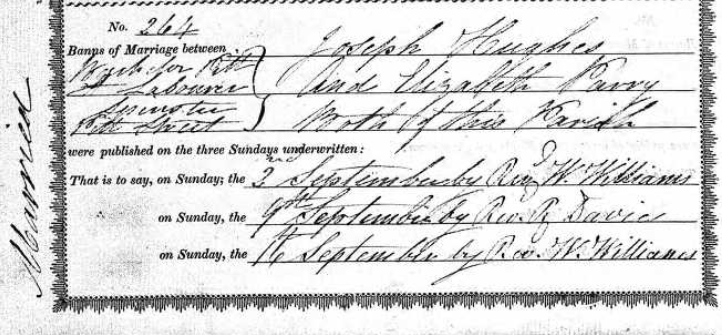 No. 264
Banns of Marriage between Joseph Hughes
Labourer And Elizabeth Parry
Spinster
Street Both of this Parish
were published on the three Sundays underwritten:
That is to say, on Sunday, the 2nd September by Rev W. Williams
on Sunday, the 9th September by Rev. R Davies
on Sunday, the 16 September by Rev. W. Williams
Married